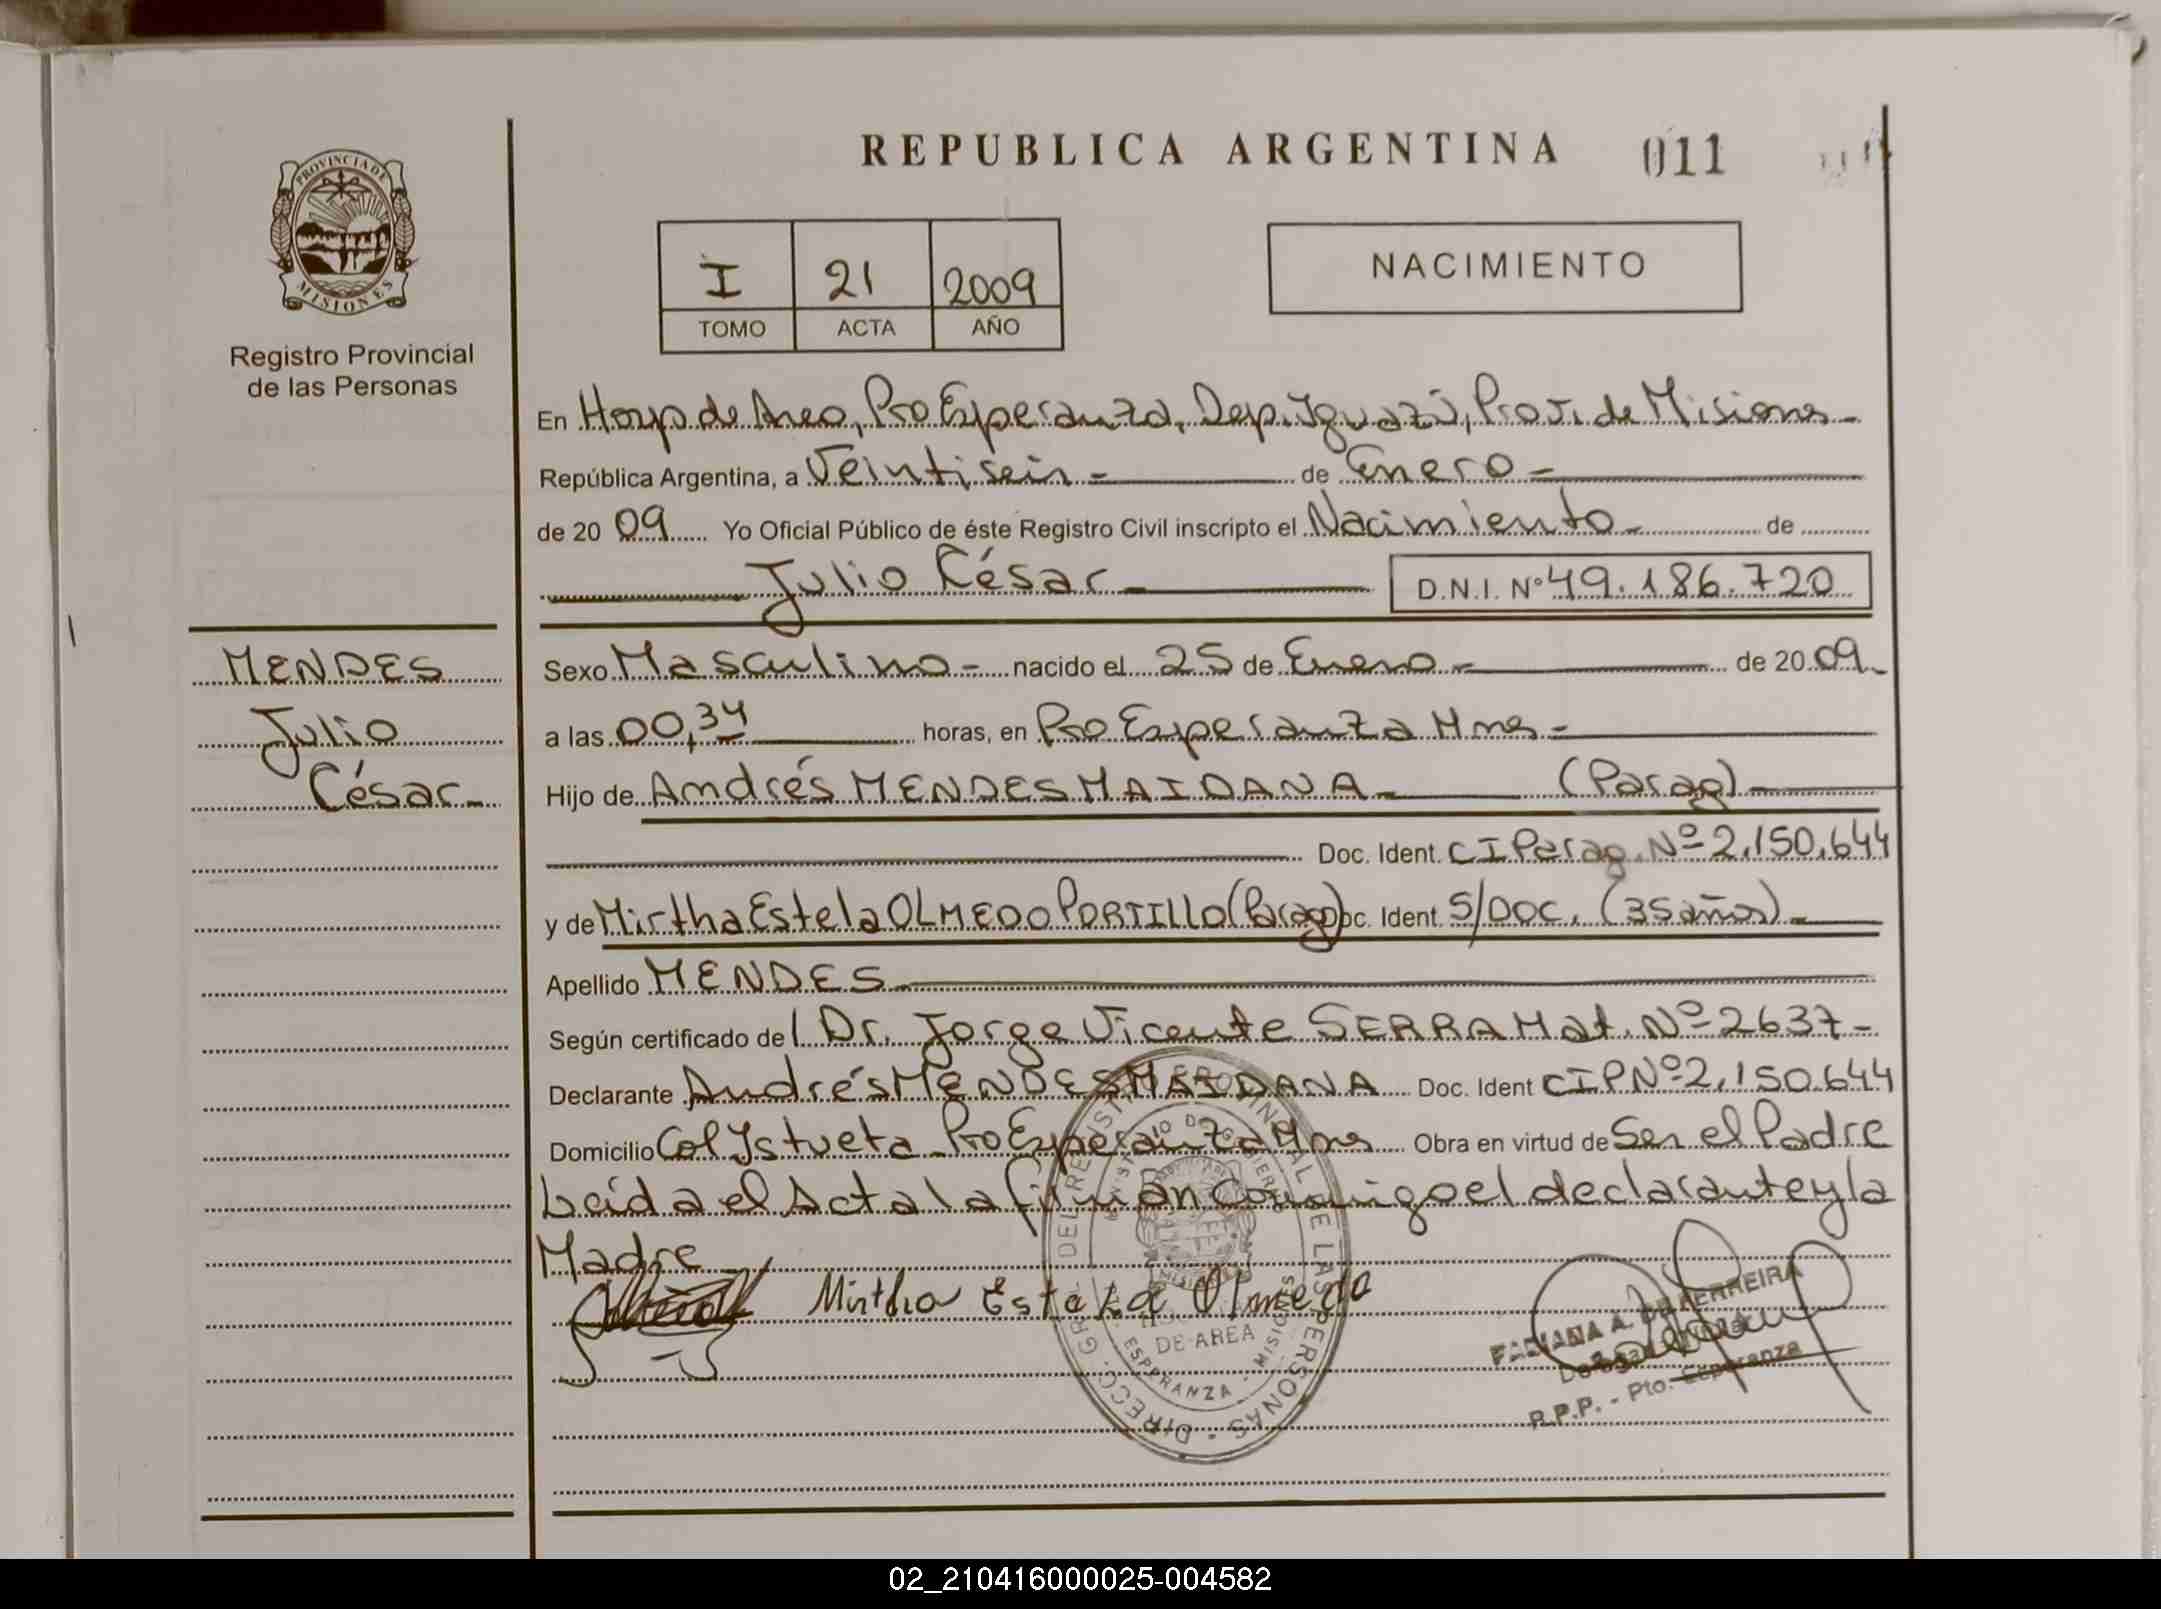 REPUBLICA ARGENTINA 011
PROVINCIA DE
MISIONES
Registro Provincial
de las Personas
I 21 2009
TOMO ACTA AÑO
NACIMIENTO
En Hosp de Area, Pto Esperanza, Dep. Iguazú, Prov. de Misiones -
República Argentina, a Veintiseis - de Enero -
de 20 09 Yo Oficial Público de éste Registro Civil inscripto el Nacimiento - de
Julio César -
D.N.I. Nº 49.186.720
MENDES
Julio
César -
Sexo Masculino - nacido el 25 de Enero - de 20 09 -
a las 00,34 horas, en Pto Esperanza Mnes -
Hijo de Andrés MENDES MAIDANA - (Parag) -
Doc. Ident. CI Parag. Nº 2,150,644
y de Mirtha Estela OLMEDO PORTILLO (Parag) Doc. Ident. S/DOC. (35 años) -
Apellido MENDES -
Según certificado de l Dr. Jorge Vicente SERRA Mat. Nº 2637 -
Declarante Andrés MENDES MAIDANA Doc. Ident CIP Nº 2,150.644
Domicilio Col Istueta - Pto Esperanza Mnes Obra en virtud de Ser el Padre
Leida el Acta la firman conmigo el declarante y la
Madre
Mirtha Estela Olmedo
DIRECC. GRAL. DEL REGISTRO PROVINCIAL DE LAS PERSONAS
MINISTERIO DE GOBIERNO
MISIONES
DE AREA
ESPERANZA - MISIONES
FABIANA A. DE FERREIRA
R.P.P. - Pto. Esperanza
02_210416000025-004582